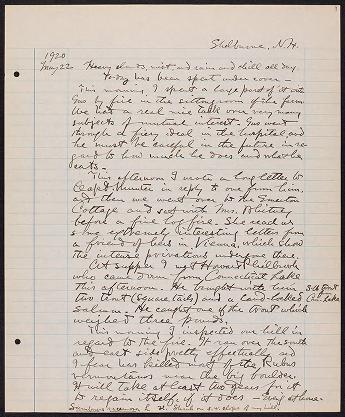 Shelburne, N.H.
1920
May 22 Heavy clouds, mist and rain and chill all day.
Today has been spent under cover —
This morning, I spent a large part of it with
Gus by fire in the sitting room of the farm
We had a real nice talk over very many
subjects of mutual interest. Gus went
through a fiery ordeal in the hospital and
he must be careful in the future in re-
gard to how much he does and what he
eats.
This afternoon I wrote a long letter to
in reply to one from him.
and then we went over to the Emerton
Cottage and sat with Mrs. Whitney
before a fire. She read us
some extremely interesting letters from
a friend of hers in Vienna, which show
the intense privations undergone there.
At supper I met Howard Philbrook
who came down from Connecticut Lake
this afternoon. He brought with him
two trout (Square tails) and a land-locked
salmon. He caught one of the trout which
weighed three pounds.
This morning I inspected our hill in
regard to the fire. It ran over the south
and east side pretty effectually and
I fear has killed most of the Rubus
near the big boulder.
It will take at least two years for it
to regain itself, if it does —